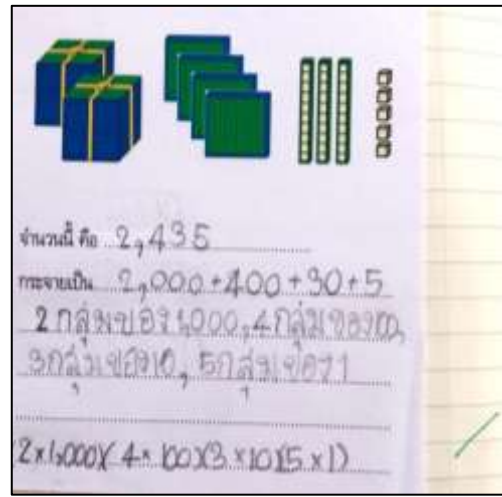 จำนวนนี้ คือ 2,435
กระจายเป็น 2,000+400+30+5
2 กลุ่มของ 1,000, 4 กลุ่มของ 100,
3 กลุ่มของ 10, 5 กลุ่มของ 1
(2×1,000)(4×100)(3×10)(5×1)